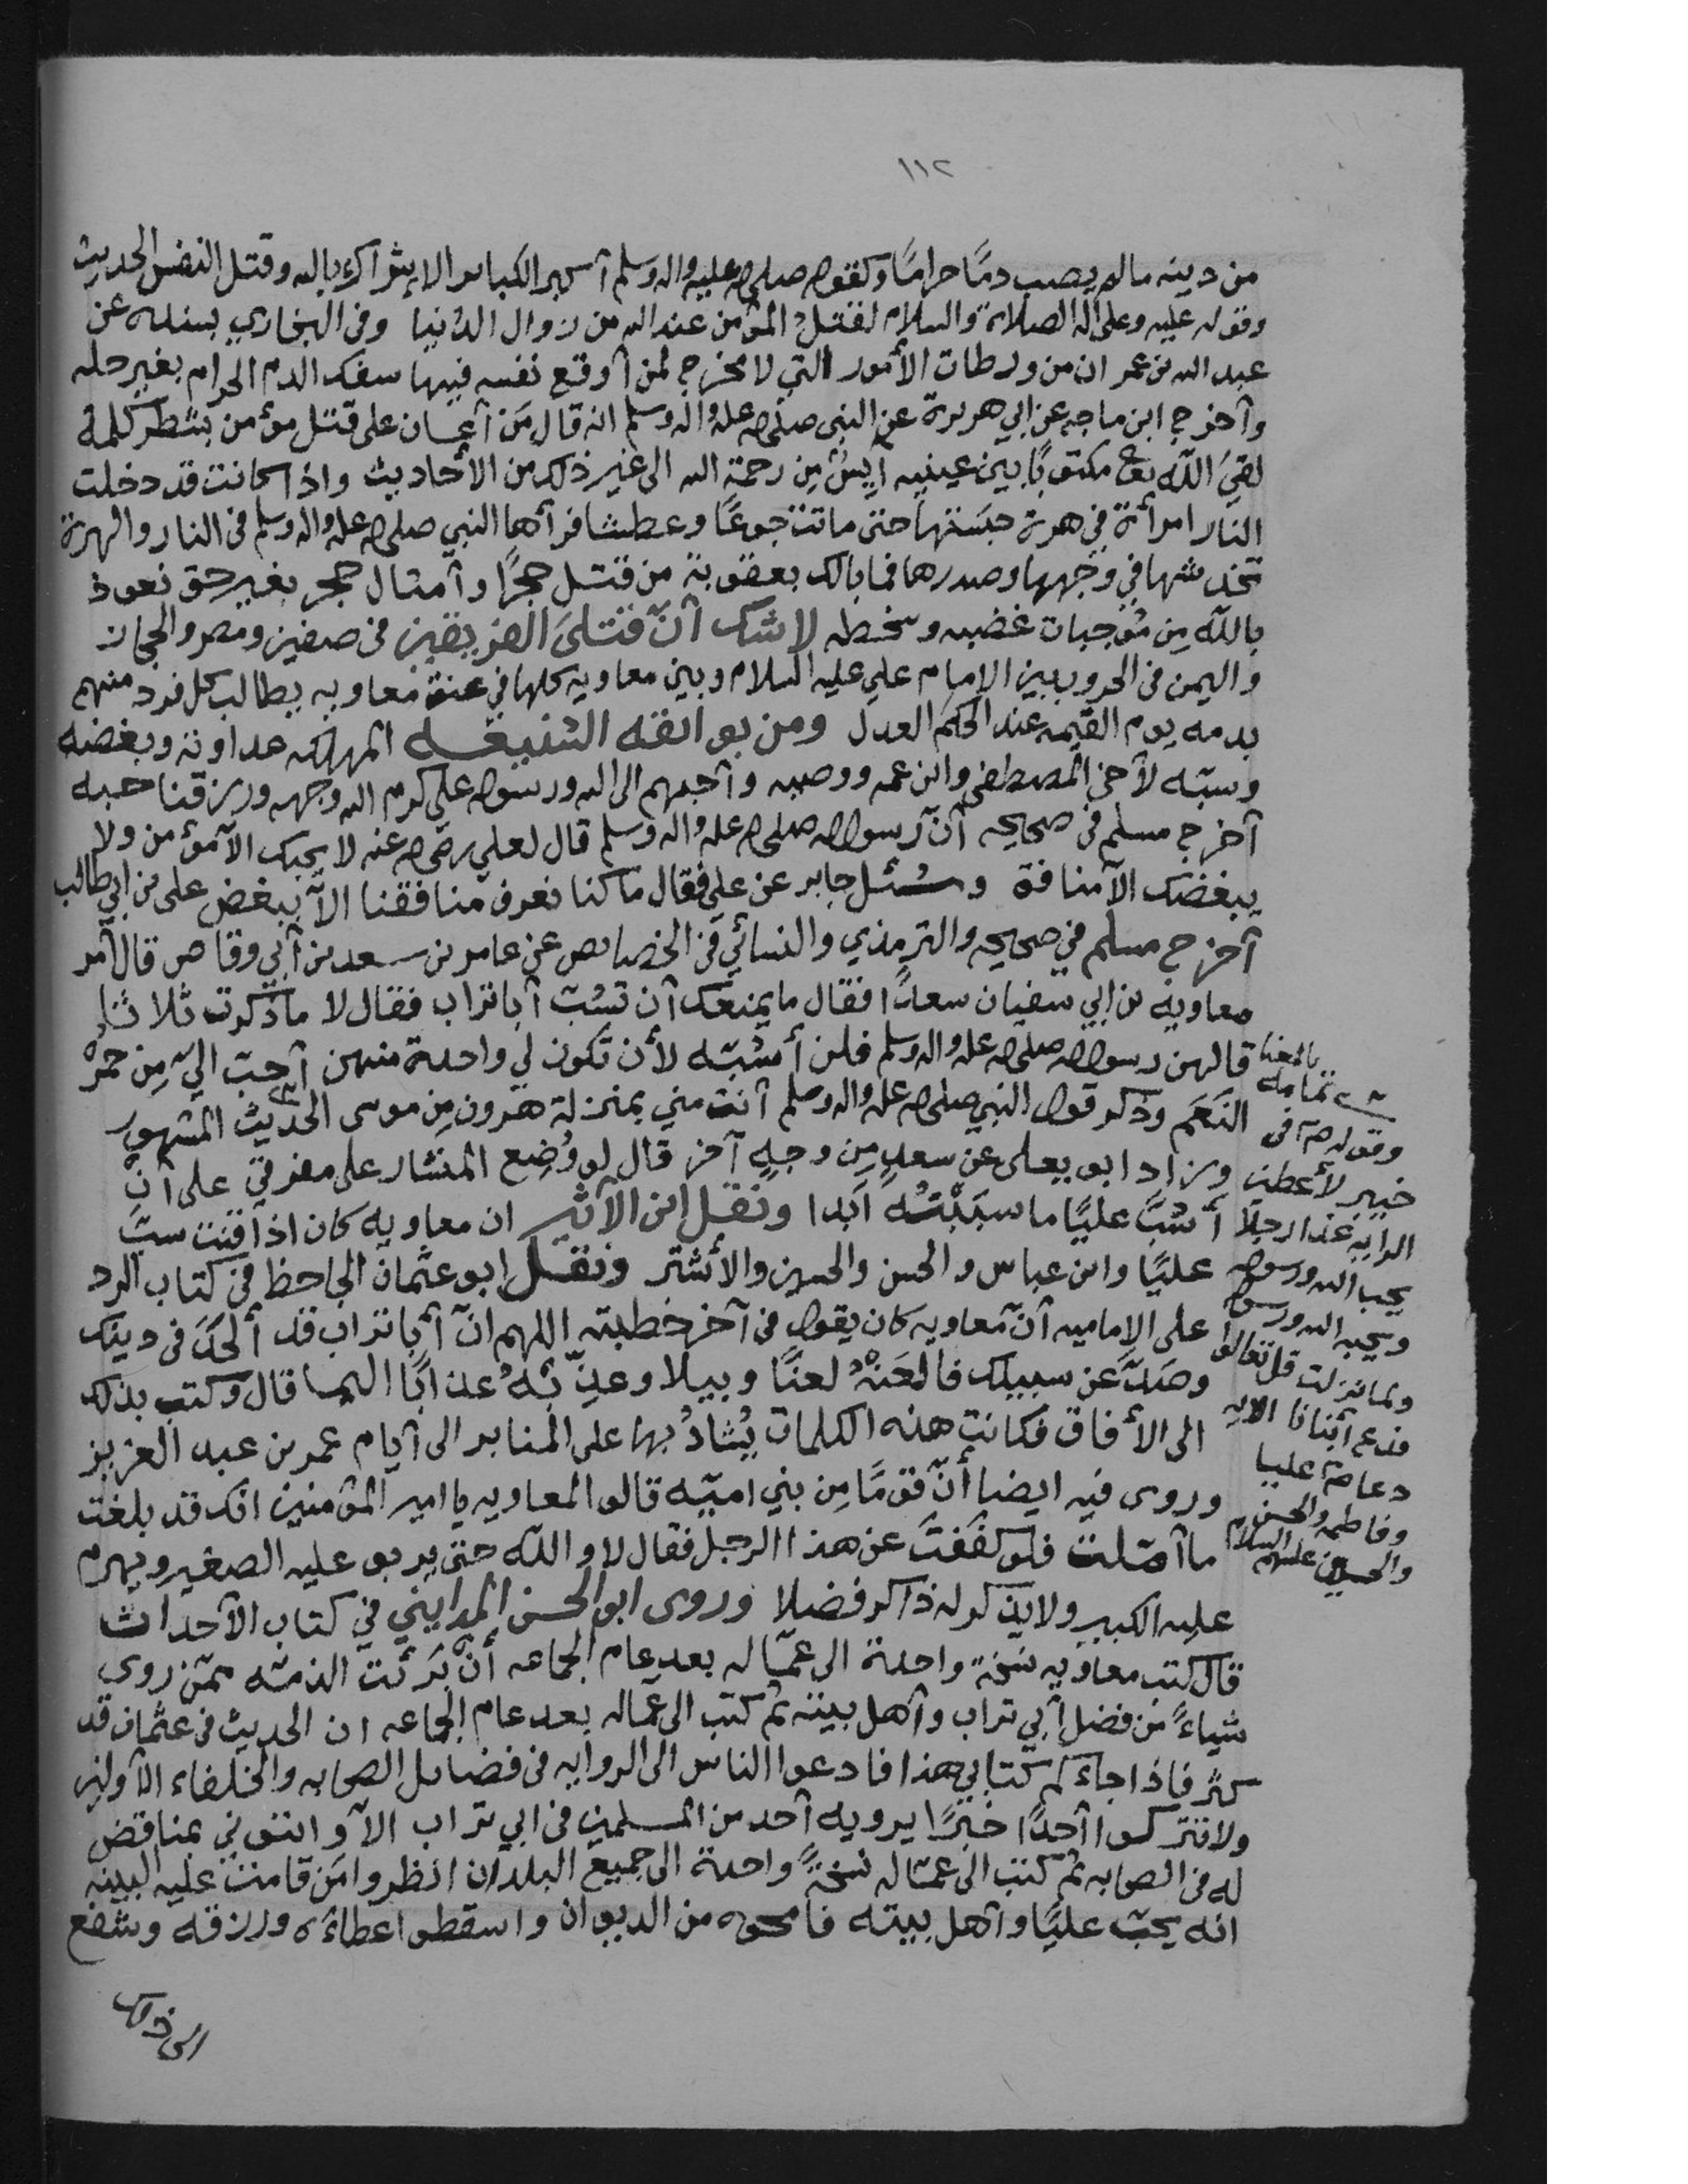 ١١٢
من دينه مالم يصب دمًا حرامًا وكقوله صلى الله عليه واله وسلم آكبر الكبائر الإشراك بالله وقتل النفس الحديث
وقوله عليه وعلى اله الصلاة والسلام لقتل المؤمن عند الله من زوال الدنيا وفي البخاري بسنده عن
عبد الله بن عمر ان من ورطات الأمور التي لا مخرج لمن آوقع نفسه فيها سفك الدم الحرام بغير حله
وآخرج ابن ماجه عن ابي هريرة عن النبي صلى الله عليه واله وسلم انه قال مَن آعان على قتل مؤمن بشطر كلمة
لقيَ اللّه مكتوبًا بين عينيه آيسٌ مِن رحمة الله الى غير ذلك من الأحاديث واذا كانت قد دخلت
النار امرأة في هرة حبَستها حتى ماتت جوعًا وعطشا فرآها النبي صلى الله عليه واله وسلم في النار والهرة
تخدشها في وجهها وصدرها فما بالك بعقوبة من قتل حجرًا وآمثال حجر بغير حق نعوذ
باللّه مِن مُوجبات غضبه وسخطه لاشك آنّ قتلَى الفريقين في صفين ومصر والحجاز
واليمن في الحروب بين الإمام علي عليه السلام وبين معاويه كلها في عنق معاويه يطالب كل فرد منهم
بدمه يوم القيمه عند الحكم العدل ومن بوائقه الشنيعه المهلكه عداوته وبغضه
وسبّه لآخي المصطفى وابن عمه ووصيه وآحبهم الى الله ورسوله علي كرم الله وجهه ورزقنا حبه
آخرج مسلم في صحيحه آنّ رسول الله صلى الله عليه واله وسلم قال لعلي رضي الله عنه لا يحبك الآ مؤمن ولا
يبغضك الآ منافق وسُئل جابر عن علي فقال ما كنا نعرف منافقنا الآ ببغض علي بن ابي طالب
آخرج مسلم في صحيحه والترمذي والنسائي في الخصائص عن عامر بن سعد بن آبي وقاص قال آمر
معاويه بن ابي سفيان سعدًا فقال ما يمنعك آن تسُبّ آبا تراب فقال لا ما ذكرت ثلاثا
قالهن رسول الله صلى الله عليه واله وسلم فلن أسُبّه لأن تكون لي واحدة منهن آحبّ اليّ مِن حُمرْ
النَعَم وذكر قول النبي صلى الله عليه واله وسلم آنت مني بمنزلة هٰرون مِن موسى الحديث المشهور
وزاد ابو يعلى عن سعدٍ مِن وجهٍ آخر قال لو وُضِع المنشار على مفرقي على آنْ
أسُبَّ عليًا ما سبَبْتُه اَبدا ونقل ابن الأثير ان معاويه كان اذا قنت سبّ
عليًا وابن عباس والحسن والحسين والأشتر ونقل ابو عثمان الجاحظ في كتاب الرد
على الإماميه آنّ معاويه كان يقول في آخر خطبته اللهم انّ آبا تراب قد ألحَدَ في دينك
وصَدّ عن سبيلك فالعَنْهُ لعنًا وبيلا وعذّبْهُ عذابًا اليما قال وكتب بذلك
الى الأفاق فكانت هذه الكلمات يُشادُ بها على المنابر الى آيام عمر بن عبد العزيز
وروى فيه ايضا أنّ قومًا مِن بني اميّه قالوا لمعاويه يا امير المؤمنين انك قد بلغت
ما آمّلت فلو كفَفتَ عن هذا الرجل فقال لا واللّه حتى يربو عليه الصغير ويهرم
عليه الكبير ولا يذكر له ذاكر فضلا وروى ابو الحسن المدايني في كتاب الآحداث
قال كتب معاويه نسخة واحدة الى عمّاله بعد عام الجماعه أنْ بَرئت الذمّه ممّن روى
شياءً من فضل آبي تراب وآهل بيته ثم كتب الى عماله بعد عام الجماعه ان الحديث في عثمان قد
كثر فاذا جاءكم كتابي هذا فادعوا الناس الى الروايه في فضائل الصحابه والخلفاء الآولين
ولا تتركوا آحدًا خبرًا يرويه آحد من المسلمين في ابي تراب الآ وائتوني بمناقض
له في الصحابه ثم كتب الى عمّاله نسخةً واحدة الى جميع البلدان انظروا مَن قامت عليه البينه
انه يحبّ عليًا وآهل بيته فامحوه من الديوان واسقطوا عطاءه ورزقه وشفع
بالمعنا
تمامه
وقوله في
خيبر لأعطين
الرايه غدا رجلا
يحب الله ورسوله
ويحبه الله ورسوله
ولما نزلت قل تعالوا
ندع آبنانا الايه
دعا عليا
وفاطمه والحسن
والحسين عليهم السلام